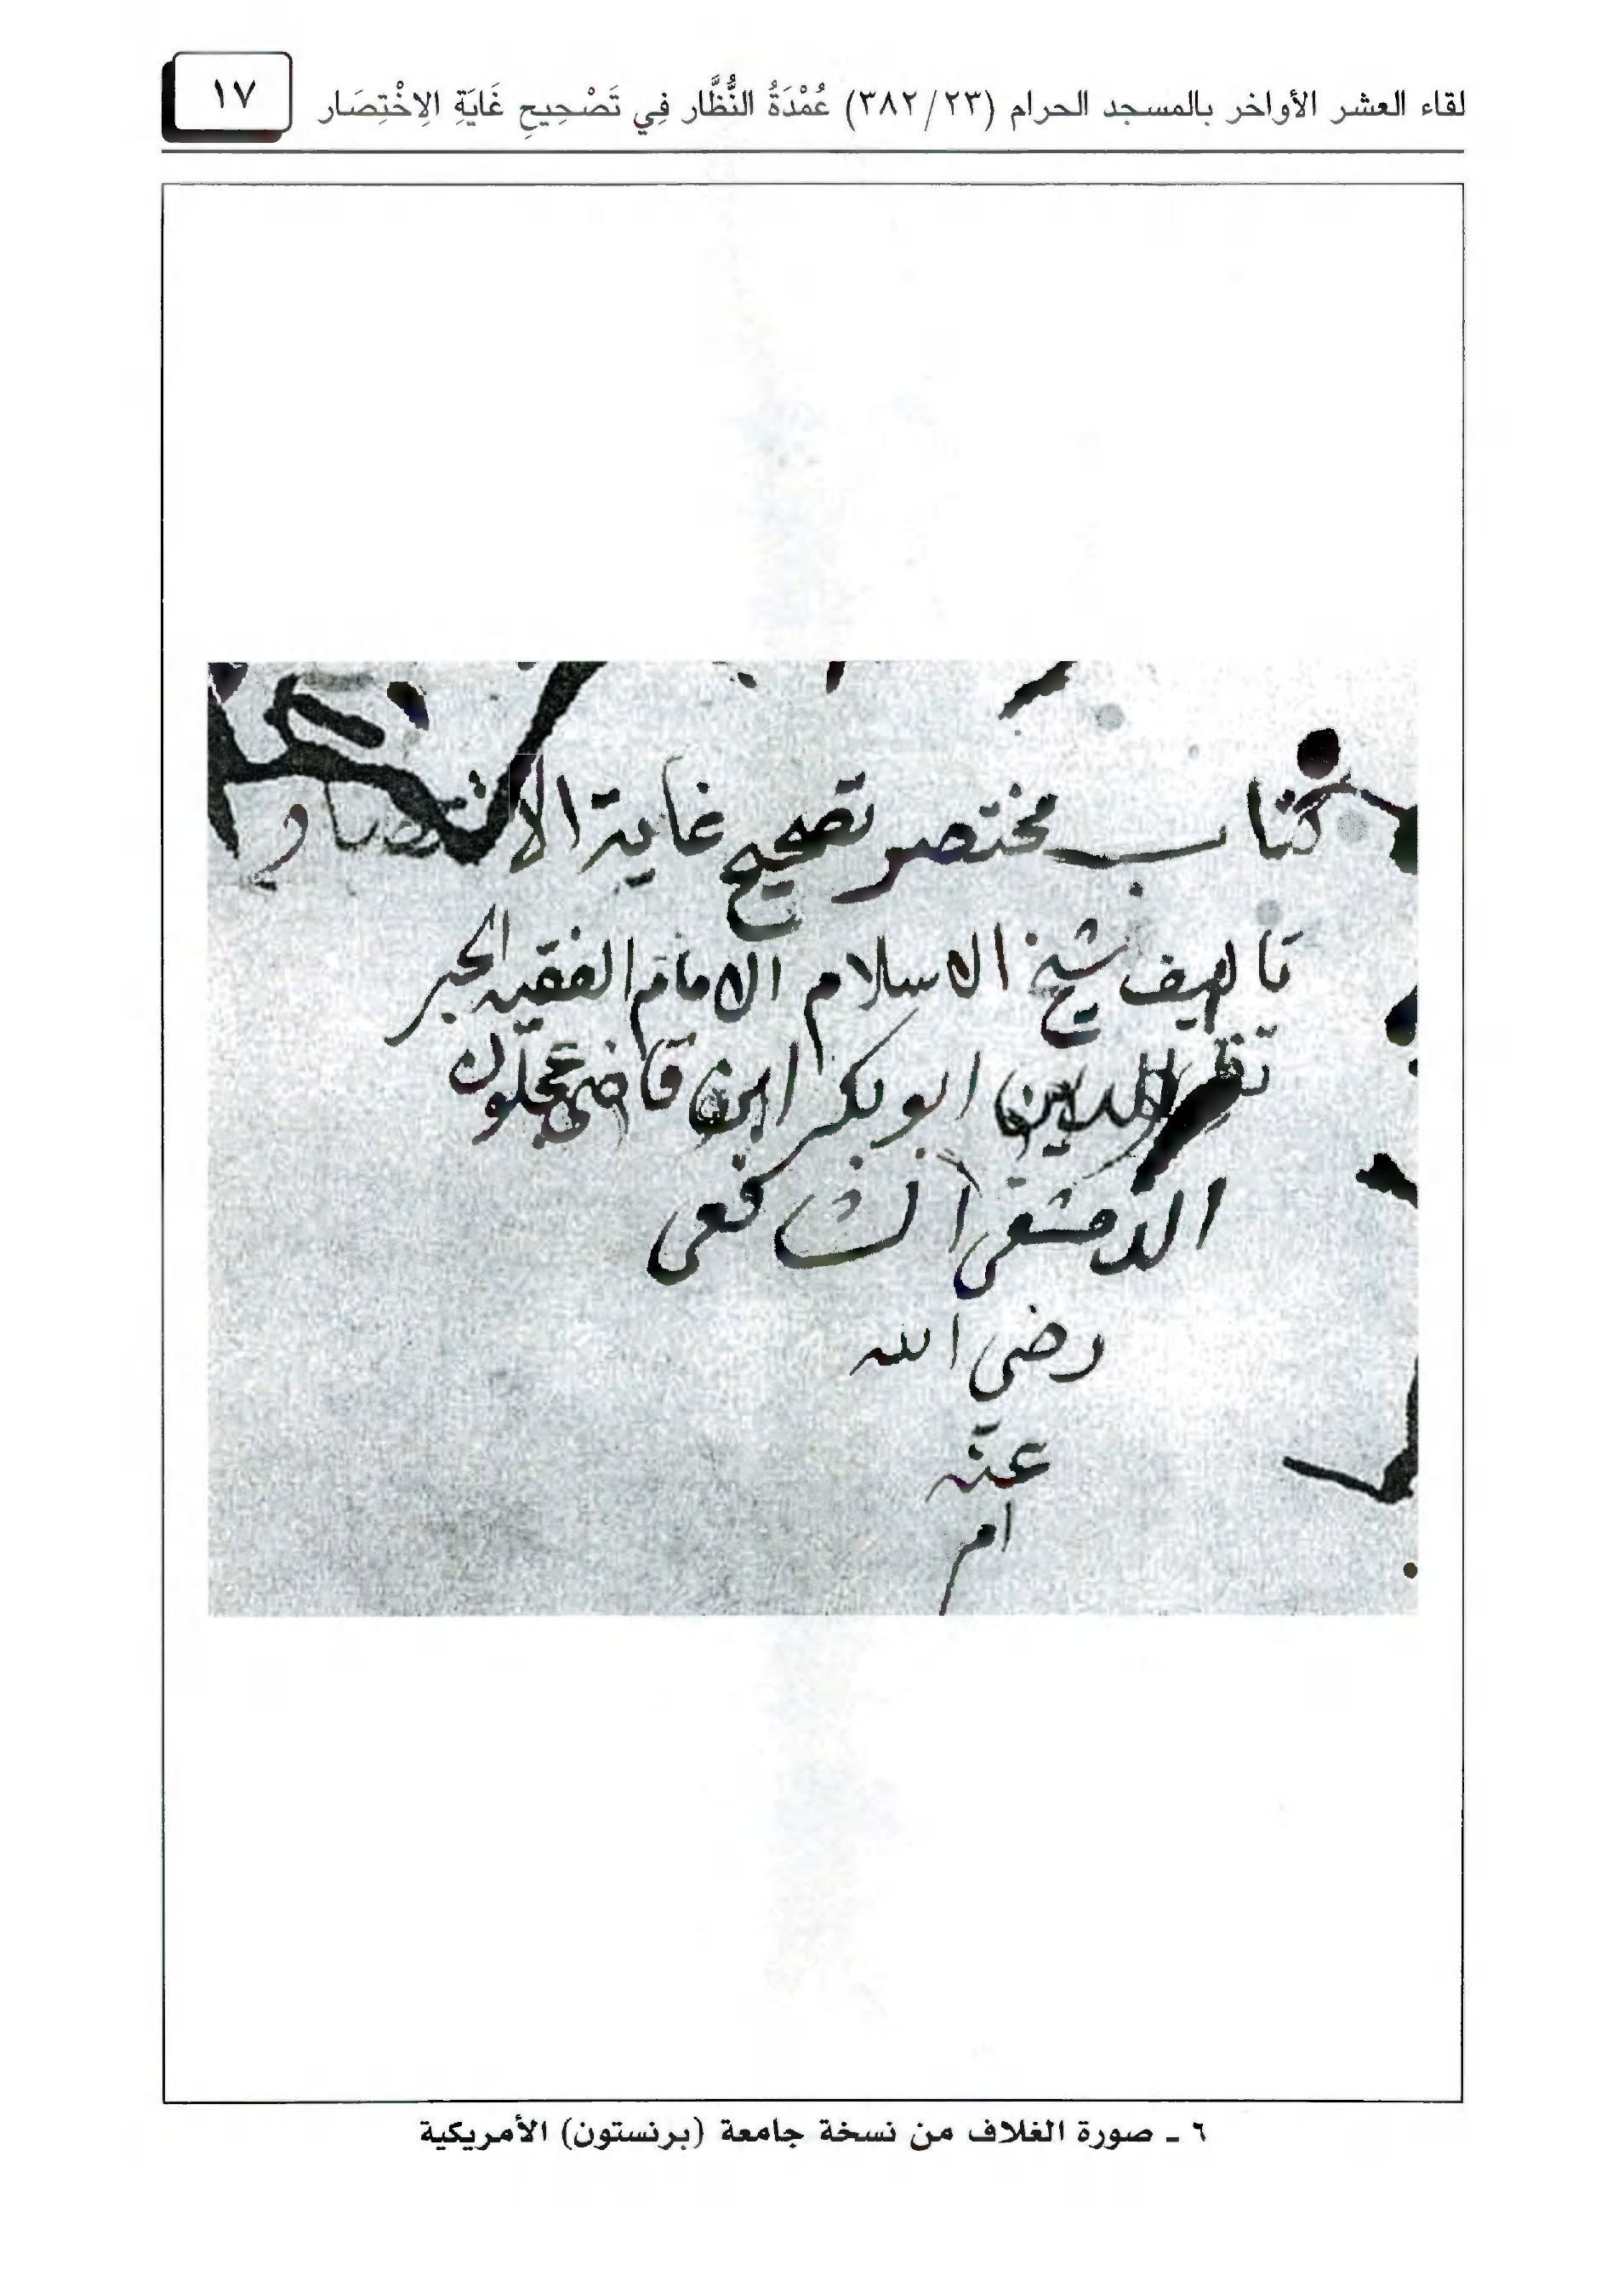 لقاء العشر الأواخر بالمسجد الحرام (٢٣/ ٣٨٢) عُمْدَةُ النُّظَّار فِي تَصْحِيحِ غَايَةِ الاِخْتِصَار
١٧
كتاب مختصر تصحيح غاية الا
تأليف شيخ الاسلام الامام الفقيه الحبر
الدين ابو بكر ابن قاضي عجلون
الدمشقي الشافعي
رضى الله
عنه
ام
٦ ـ صورة الغلاف من نسخة جامعة (برنستون) الأمريكية